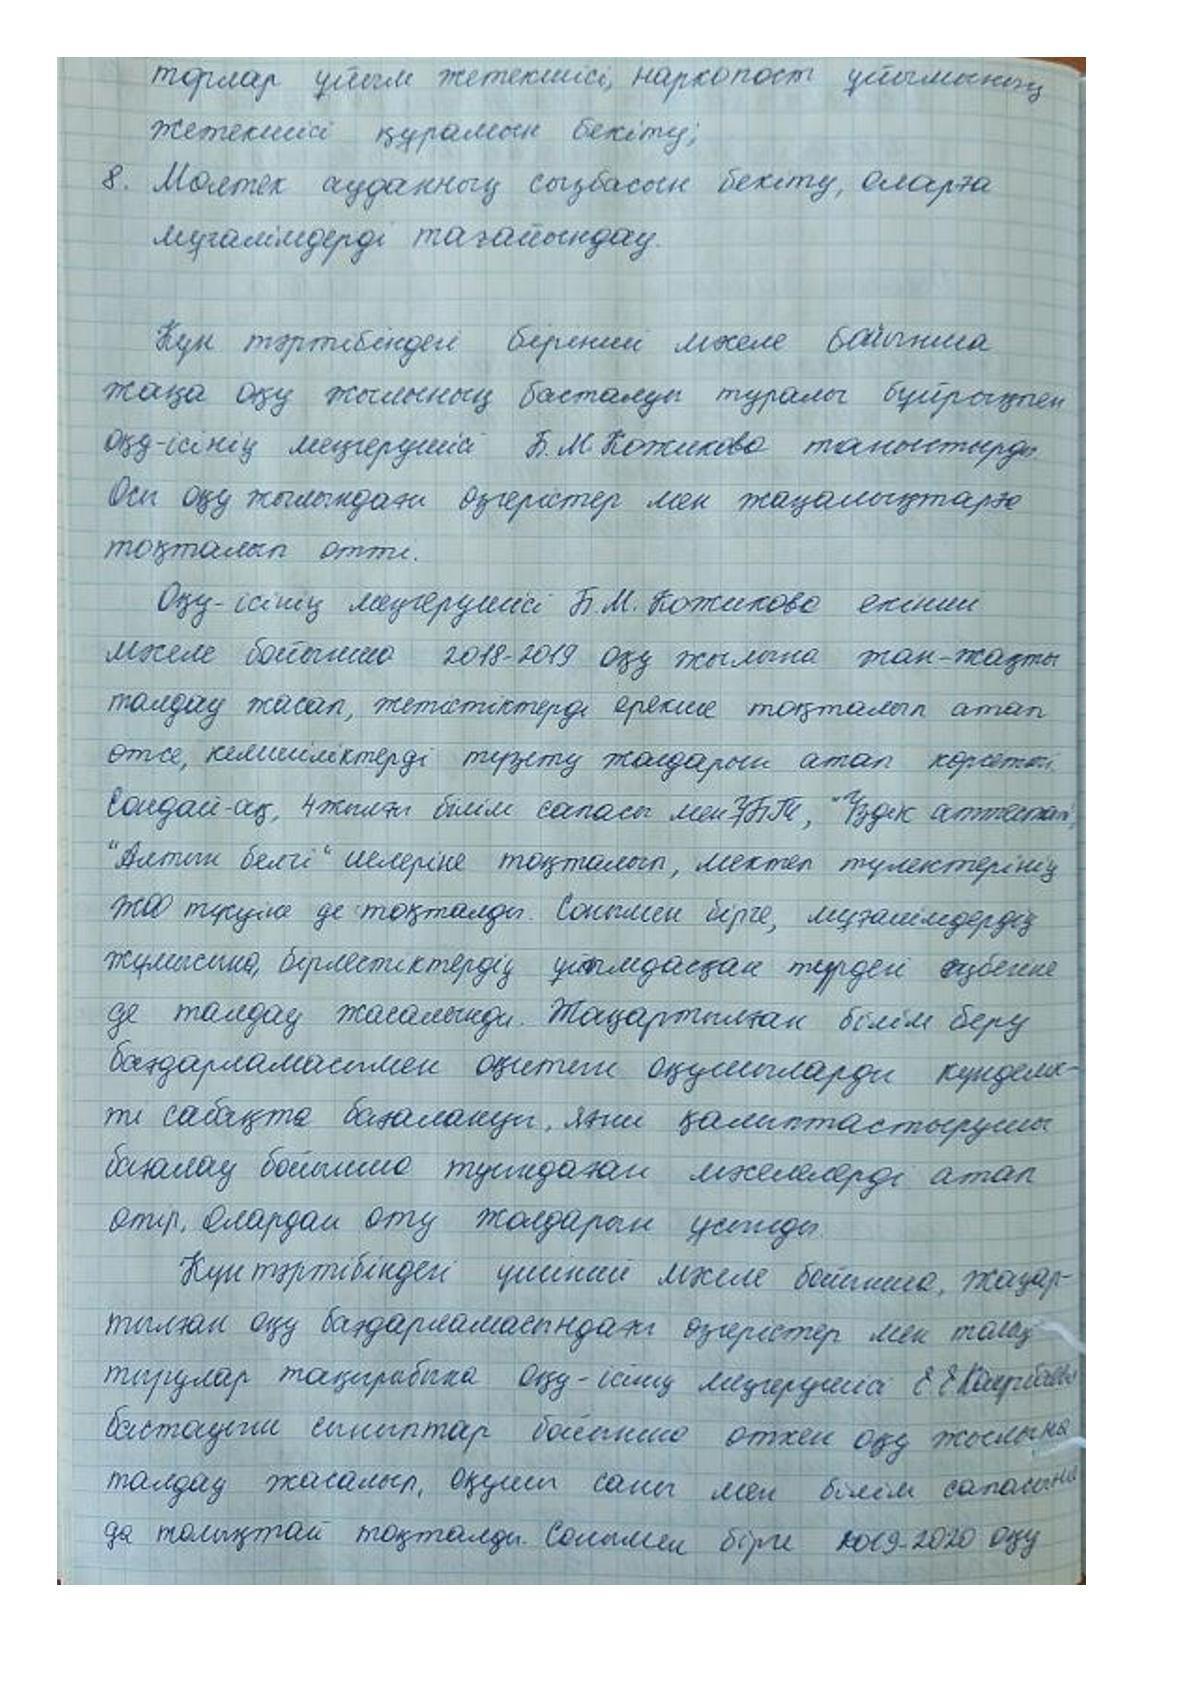 торлар ұйым жетекшісі, наркопост ұйымының
жетекшісі құрамын бекіту;
8. Мөлтек ауданның сызбасын бекіту, оларға
мұғалімдерді тағайындау.
Күн тәртібіндегі бірінші мәселе бойынша
жаңа оқу жылының басталуы туралы бұйрықпен
оқу-ісінің меңгерушісі Б.М.Кожикова таныстырды.
Осы оқу жылындағы өзгерістер мен жаңалықтарға
тоқталып өтті.
Оқу-ісінің меңгерушісі Б.М.Кожикова екінші
мәселе бойынша 2018-2019 оқу жылына жан-жақты
талдау жасап, жетістіктерді ерекше тоқталып атап
өтсе, кемшіліктерді түзету жолдарын атап көрсетті.
Сондай-ақ, 4 жылғы білім сапасы мен ҰБТ, "Үздік аттестат",
"Алтын белгі" иелеріне тоқталып, мектеп түлектерінің
ЖОО түсуіне де тоқталды. Сонымен бірге, мұғалімдердің
жұмысына, бірлестіктердің ұйымдасқан түрдегі еңбегіне
де талдау жасалынды. Жаңартылған білім беру
бағдарламасымен оқитын оқушыларды күнделік-
ті сабақта бағалануы, яғни қалыптастырушы
бағалау бойынша туындаған мәселелерді атап
өтіп, олардан өту жолдарын ұсынды.
Күн тәртібіндегі үшінші мәселе бойынша, жаңар-
тылған оқу бағдарламасындағы өзгерістер мен толық
тырулар тақырабына оқу-ісінің меңгерушісі Е.Е.
бастауыш сыныптар бойынша өткен оқу жылына
талдау жасалып, оқушы саны мен білім сапасына
да толықтай тоқталды. Сонымен бірге 2019-2020 оқу